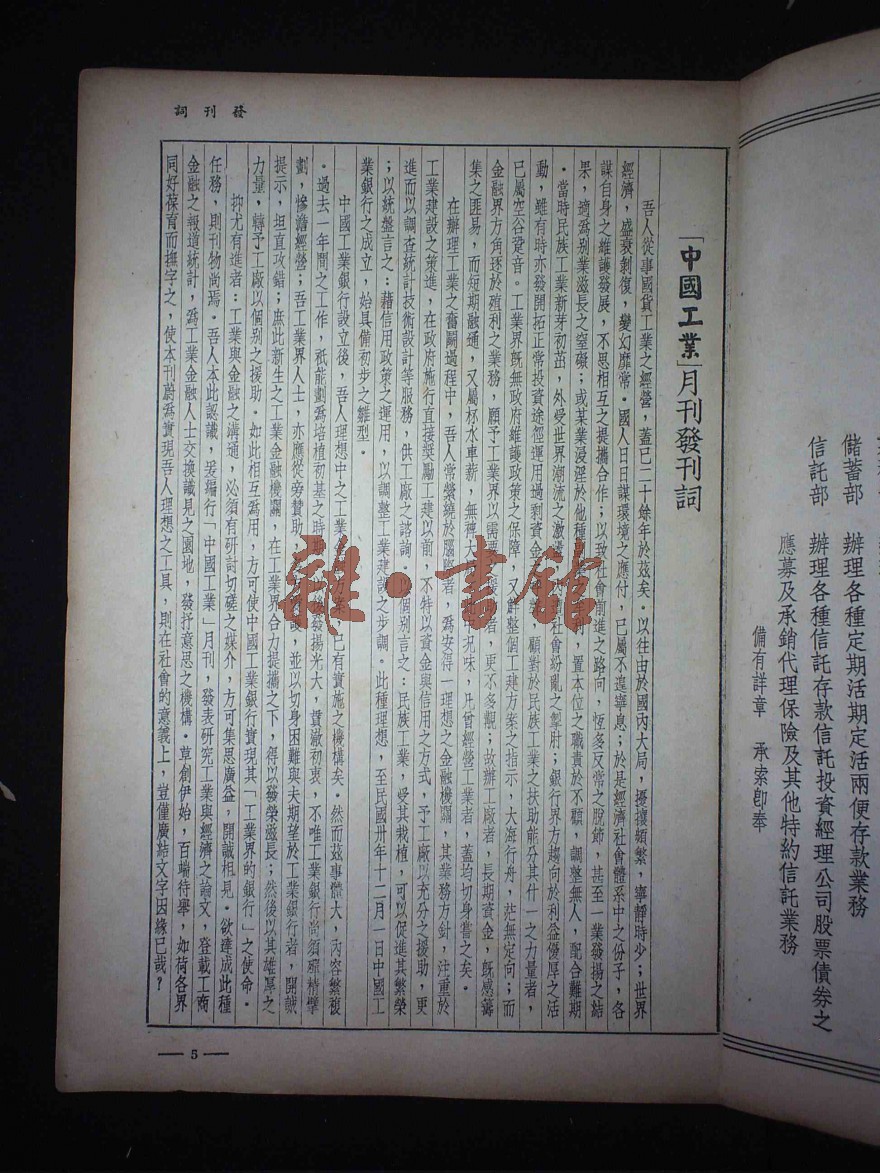 發刊詞
「中國工業」月刊發刊詞
吾人從事國貨工業之經營，蓋已二十餘年於茲矣．以往由於國內大局，擾攘頻繁，寧靜時少；世界
經濟，盛衰剝復，變幻靡常．國人日日謀環境之應付，已屬不遑寧息；於是經濟社會體系中之份子，各
謀自身之維護發展，不思相互之提攜合作；以致社會前進之路向，恆多反常之脫節，甚至一業發揚之結
果，適為別業滋長之窒礙；或某業浸淫於他種，置本位之職責於不顧，調整無人，配合難期
．當時民族工業新芽初茁，外受世界潮流之激，社會紛亂之掣肘；銀行界方趨向於利益優厚之活
動，雖有時亦發開拓正常投資途徑運用過剩資金，顧對於民族工業之扶助能分其什一之力量者，
已屬空谷跫音．工業界既無政府維護政策之保障，又鮮整個工建方案之指示，大海行舟，茫無定向；而
金融界方角逐於殖利之業務，願予工業界以需要援者，更不多覯；故辦工廠者，長期資金，既感籌
集之匪易，而短期融通，又屬杯水車薪，無裨大況味，凡曾經營工業者，蓋均切身嘗之矣．
在辦理工業之奮鬭過程中，吾人常縈繞於腦際者，為安得一理想之金融機關，其業務方針，注重於
工業建設之策進，在政府施行直接獎勵工建以前，不特以資金與信用之方式，予工廠以充分之援助，更
進而以調查統計技術設計等服務，供工廠之諮詢．以個別言之：民族工業，受其栽植，可以促進其繁榮
；以統盤言之：藉信用政策之運用，以調整工業建設之步調．此種理想，至民國卅年十二月一日中國工
業銀行之成立，始具備初步之雛型．
中國工業銀行設立後，吾人理想中之工業，已有實施之機構矣．然而茲事體大，內容繁複
．過去一年間之工作，祇能劃為培植初基之時期，後發揚光大，貫澈初衷，不唯工業銀行尚須礦精擘
劃，慘澹經營；吾工業界人士，亦應從旁贊助，並以切身困難與夫期望於工業銀行者，開誠
提示，坦直攻錯；庶此新生之工業金融機關，在工業界合力提攜之下，得以發榮滋長；然後以其雄厚之
力量，轉予工廠以個別之援助．如此相互為用，方可使中國工業銀行實現其「工業界的銀行」之使命．
抑尤有進者：工業與金融之溝通，必須有研討切磋之媒介，方可集思廣益，開誠相見．欲達成此種
任務，則刊物尚焉．吾人本此認識，爰編行「中國工業」月刊，發表研究工業與經濟之論文，登載工商
金融之報道統計，為工業金融人士交換識見之園地，發抒意思之機構．草創伊始，百端待舉，如荷各界
同好葆育而撫字之，使本刊蔚為實現吾人理想之工具，則在社會的意義上，豈僅廣結文字因緣已哉？
— 5 —
雜·書館
儲蓄部　辦理各種定期活期定活兩便存款業務
信託部　辦理各種信託存款信託投資經理公司股票債券之
應募及承銷代理保險及其他特約信託業務
備有詳章　承索即奉